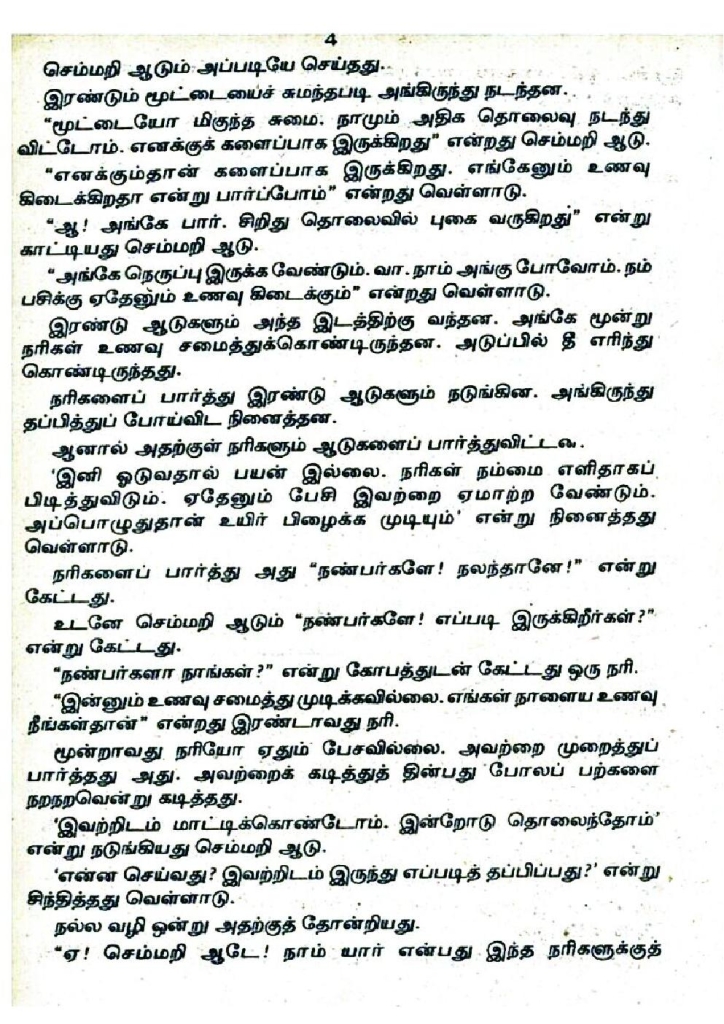 4
செம்மறி ஆடும் அப்படியே செய்தது.
இரண்டும் மூட்டையைச் சுமந்தபடி அங்கிருந்து நடந்தன.
“மூட்டையோ மிகுந்த சுமை. நாமும் அதிக தொலைவு நடந்து
விட்டோம். எனக்குக் களைப்பாக இருக்கிறது” என்றது செம்மறி ஆடு.
“எனக்கும்தான் களைப்பாக இருக்கிறது. எங்கேனும் உணவு
கிடைக்கிறதா என்று பார்ப்போம்” என்றது வெள்ளாடு.
“ஆ! அங்கே பார். சிறிது தொலைவில் புகை வருகிறது” என்று
காட்டியது செம்மறி ஆடு.
“அங்கே நெருப்பு இருக்க வேண்டும். வா. நாம் அங்கு போவோம். நம்
பசிக்கு ஏதேனும் உணவு கிடைக்கும்” என்றது வெள்ளாடு.
இரண்டு ஆடுகளும் அந்த இடத்திற்கு வந்தன. அங்கே மூன்று
நரிகள் உணவு சமைத்துக்கொண்டிருந்தன. அடுப்பில் தீ எரிந்து
கொண்டிருந்தது.
நரிகளைப் பார்த்து இரண்டு ஆடுகளும் நடுங்கின. அங்கிருந்து
தப்பித்துப் போய்விட நினைத்தன.
ஆனால் அதற்குள் நரிகளும் ஆடுகளைப் பார்த்துவிட்டன.
‘இனி ஓடுவதால் பயன் இல்லை. நரிகள் நம்மை எளிதாகப்
பிடித்துவிடும். ஏதேனும் பேசி இவற்றை ஏமாற்ற வேண்டும்.
அப்பொழுதுதான் உயிர் பிழைக்க முடியும்’ என்று நினைத்தது
வெள்ளாடு.
நரிகளைப் பார்த்து அது “நண்பர்களே! நலந்தானே!” என்று
கேட்டது.
உடனே செம்மறி ஆடும் “நண்பர்களே! எப்படி இருக்கிறீர்கள்?”
என்று கேட்டது.
“நண்பர்களா நாங்கள்?” என்று கோபத்துடன் கேட்டது ஒரு நரி.
“இன்னும் உணவு சமைத்து முடிக்கவில்லை. எங்கள் நாளைய உணவு
நீங்கள்தான்” என்றது இரண்டாவது நரி.
மூன்றாவது நரியோ ஏதும் பேசவில்லை. அவற்றை முறைத்துப்
பார்த்தது அது. அவற்றைக் கடித்துத் தின்பது போலப் பற்களை
நறநறவென்று கடித்தது.
‘இவற்றிடம் மாட்டிக்கொண்டோம். இன்றோடு தொலைந்தோம்’
என்று நடுங்கியது செம்மறி ஆடு.
‘என்ன செய்வது? இவற்றிடம் இருந்து எப்படித் தப்பிப்பது?’ என்று
சிந்தித்தது வெள்ளாடு.
நல்ல வழி ஒன்று அதற்குத் தோன்றியது.
“ஏ! செம்மறி ஆடே! நாம் யார் என்பது இந்த நரிகளுக்குத்